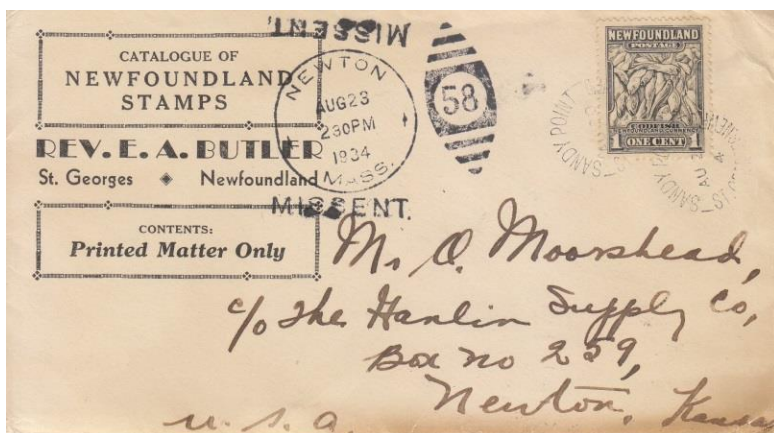 MISSENT.
CATALOGUE OF
NEWFOUNDLAND
STAMPS
REV. E. A. BUTLER
St. Georges ◆ Newfoundland
CONTENTS:
Printed Matter Only
NEWTON
AUG 23
2 30 PM
1934
MASS.
58
MISSENT.
NEWFOUNDLAND
POSTAGE
CODFISH
NEWFOUNDLAND CURRENCY
1 ONE CENT 1
SANDY POINT
SANDY PO
AU 2
Mr. O. Moorshead,
c/o The Hanlin Supply Co,
Box no 259,
Newton, Kansas
U. S. A.